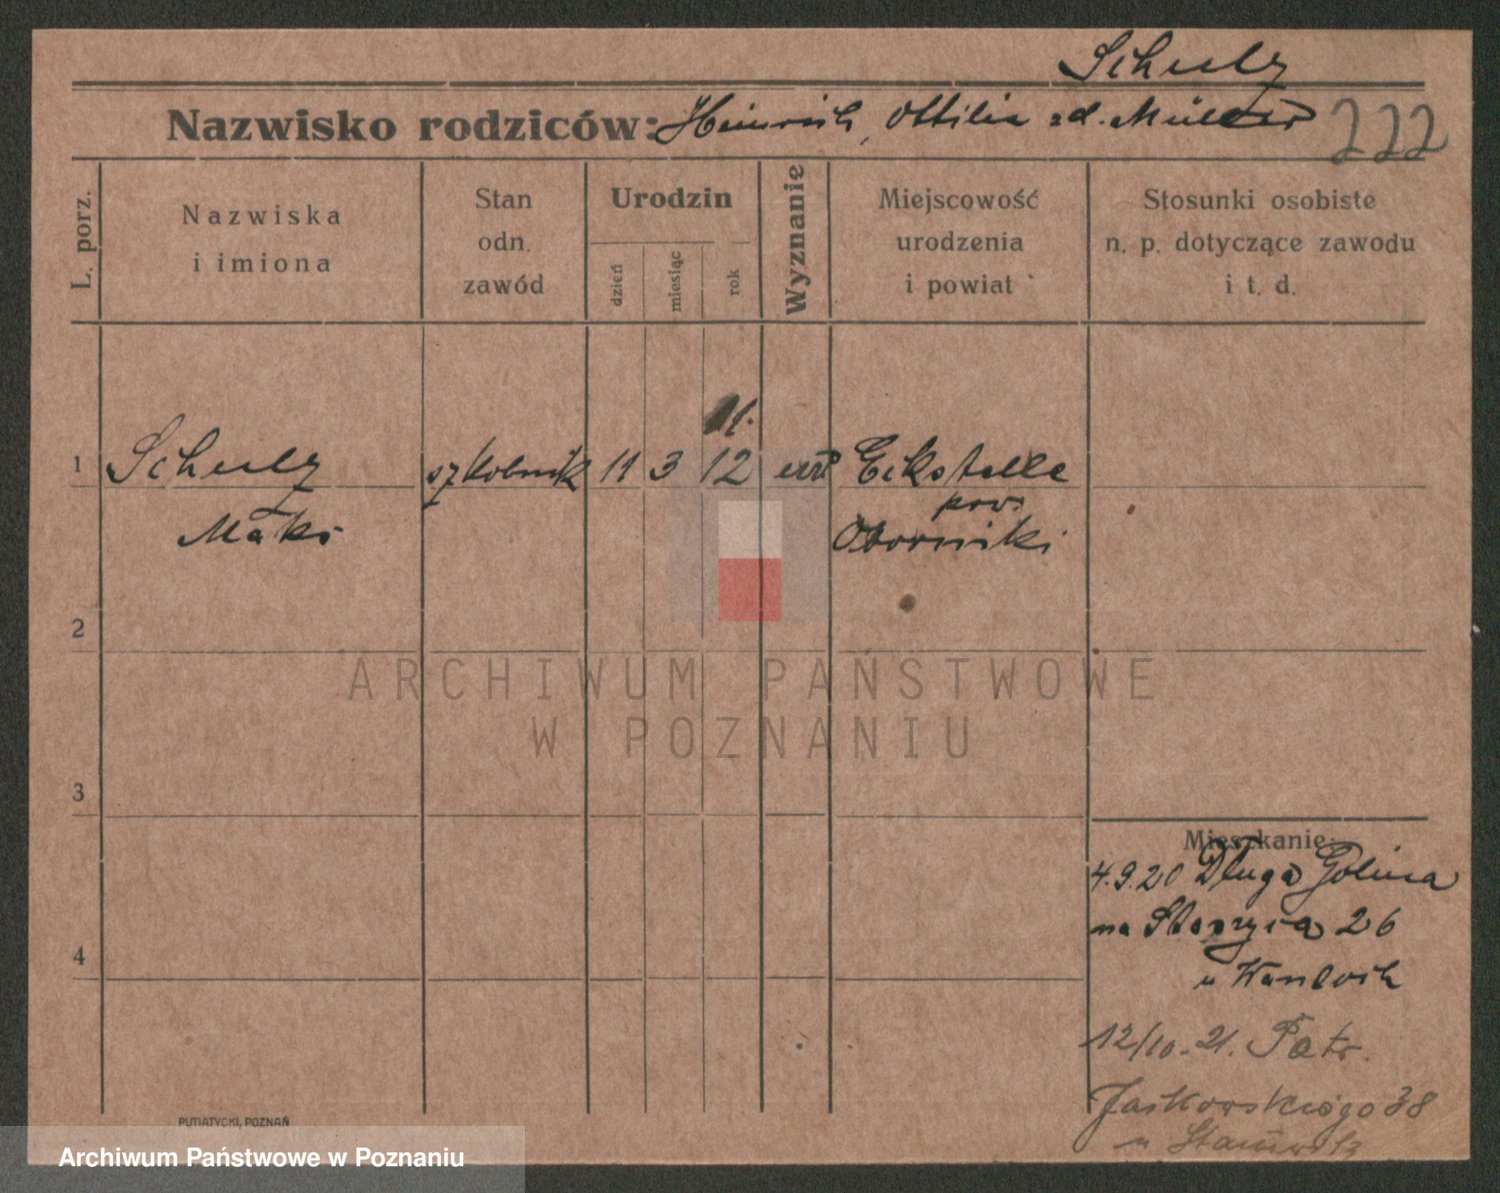 Schulz
Nazwisko rodziców: Heinrich, Ottilia zd. Müller 222
L. porz.
Nazwiska
i imiona
Stan
odn.
zawód
Urodzin
dzień
miesiąc
rok
Wyznanie
Miejscowość
urodzenia
i powiat
Stosunki osobiste
n. p. dotyczące zawodu
i t. d.
11.
1 Schulz szkolnik 11 3 12 Eckstelle
pow.
Maks Oborniki
2
ARCHIWUM PAŃSTWOWE
W POZNANIU
3
Mieszkanie:
4.9.20 Długa Golina
na Staszyca 26
4
u
12/10. 21. Patr.
Jackowskiego 38
u
PUTIATYCKI, POZNAŃ
Archiwum Państwowe w Poznaniu